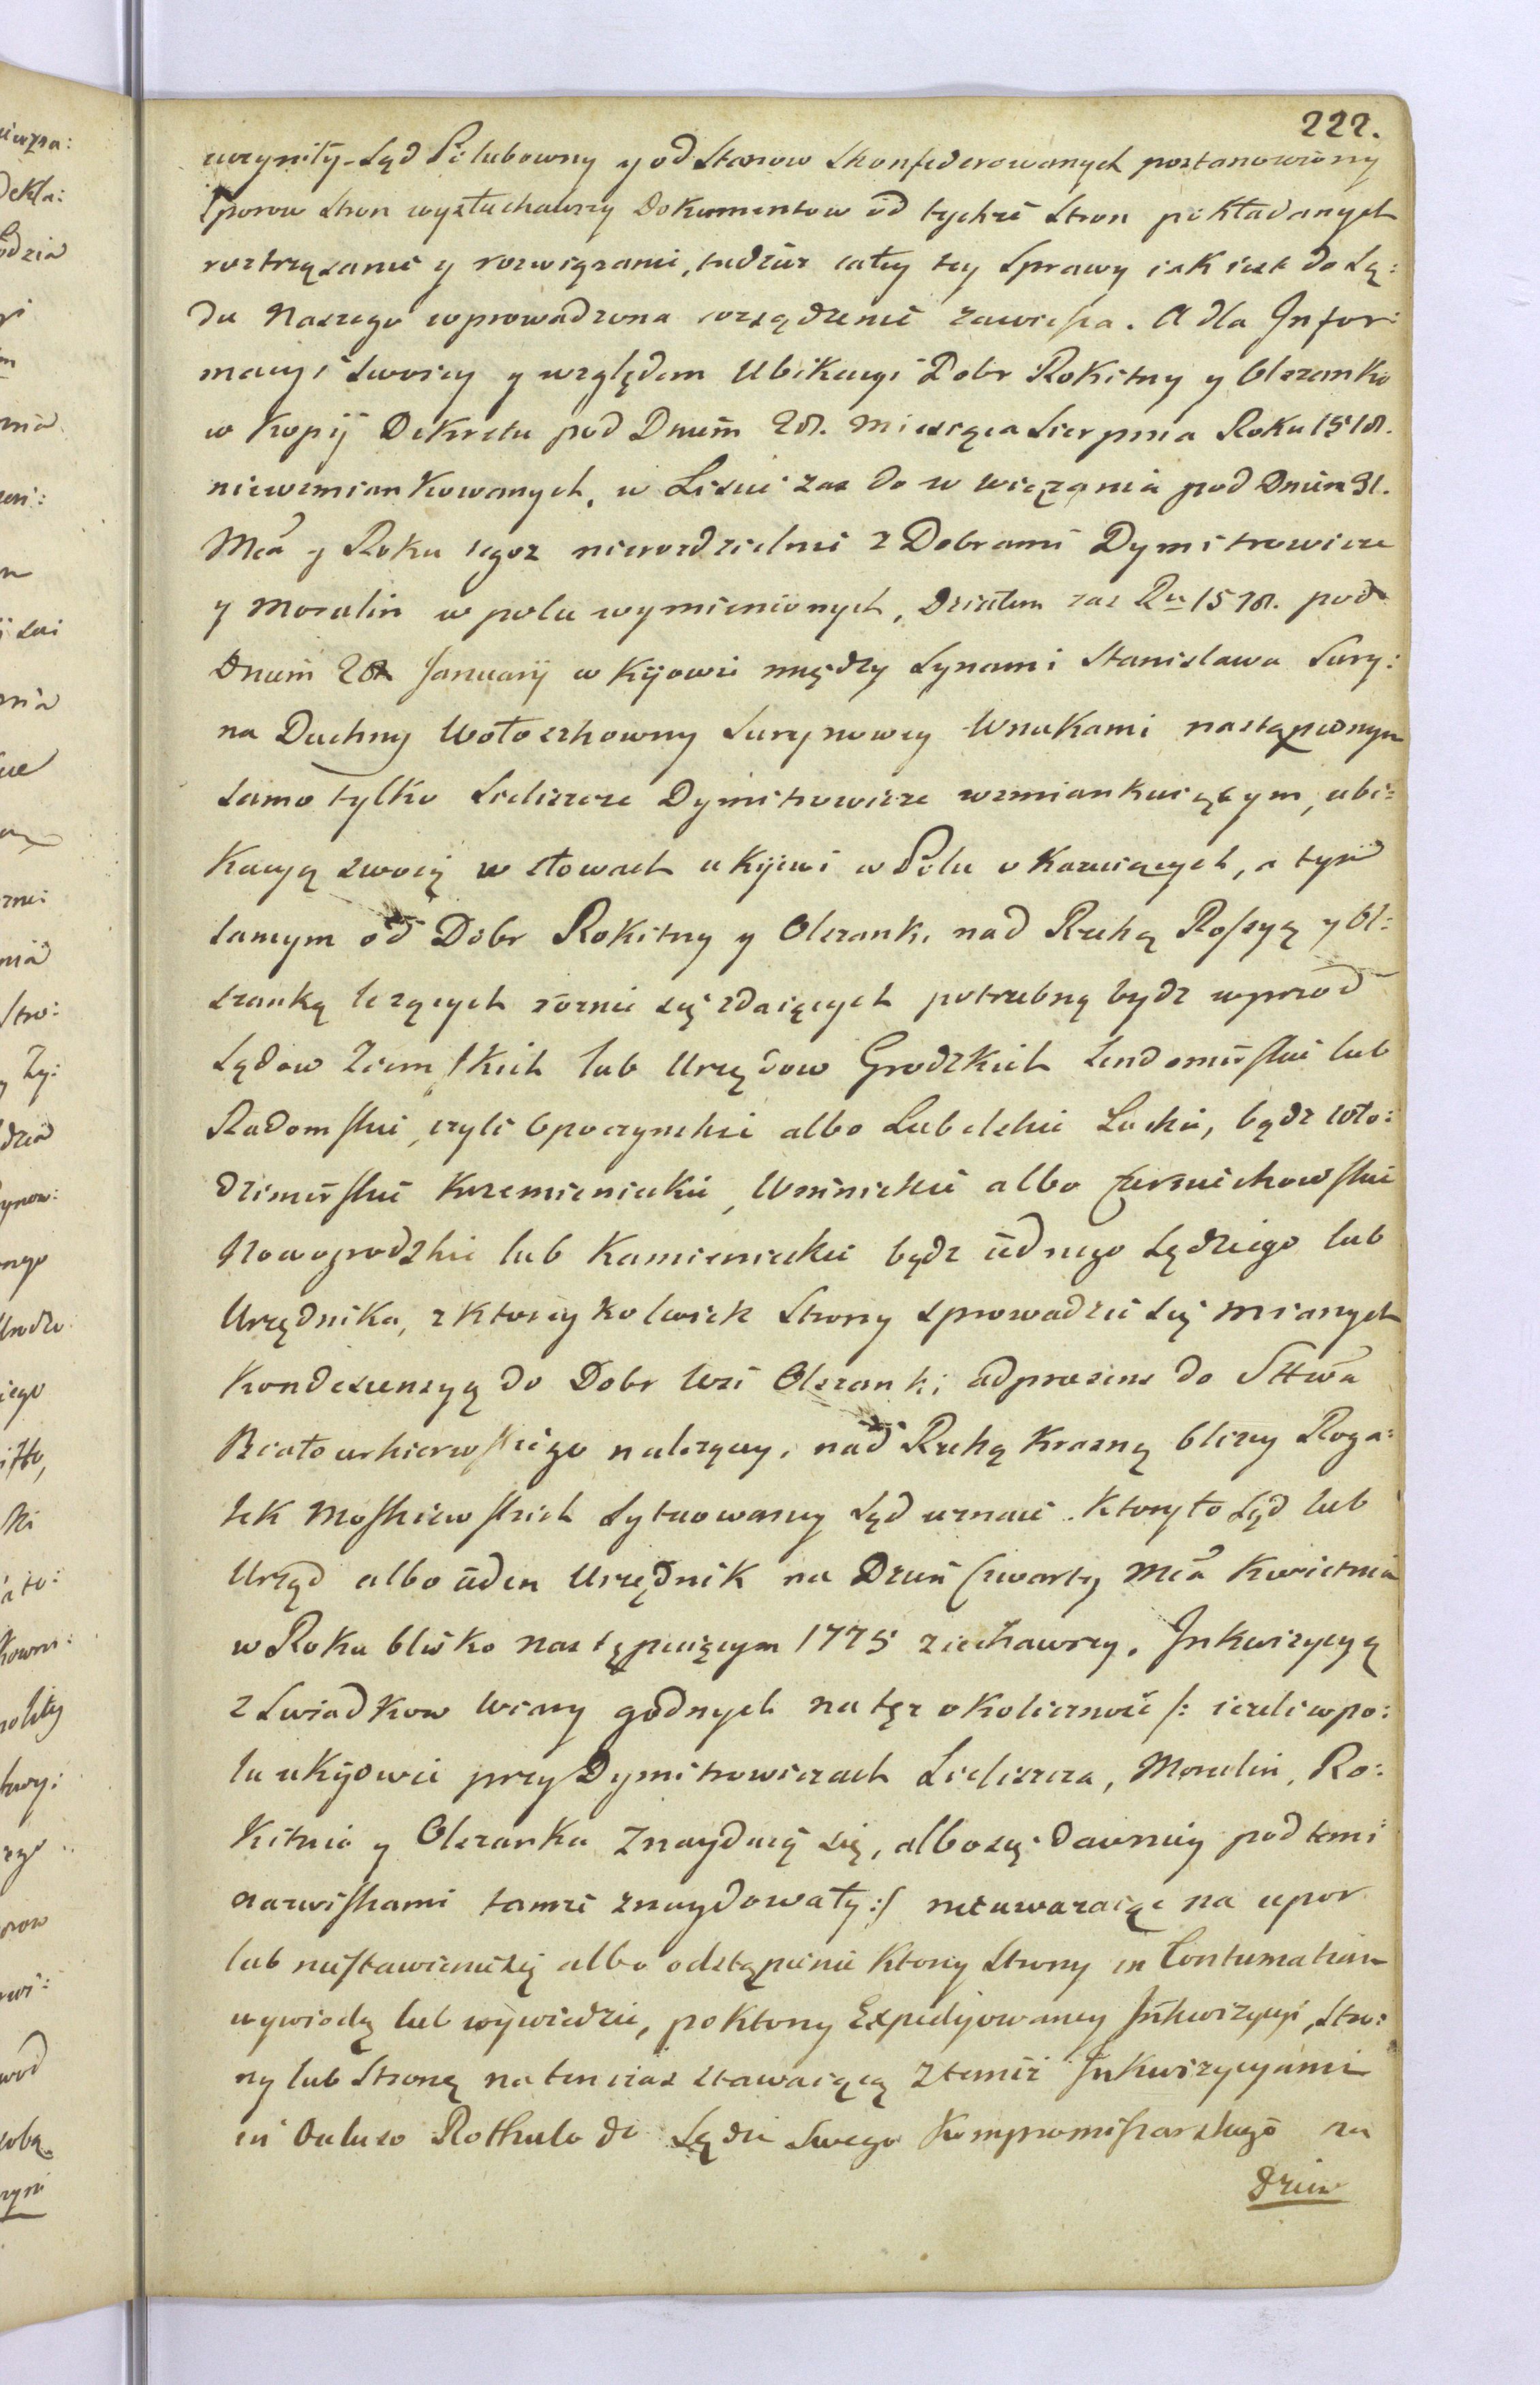 222.
uczynity. Sąd Polubowny y od Stanow Skonfederowanych postanowiony
sporow Stron wysłuchawszy Dokumentow od tychże Stron pokładanych
roztrząsanie y rozwiązanie, tudzież całey tey Sprawy iak iest do Są:
du Naszego wprowadzona osądzenie zawiesza. A dla Infor:
macyi swoiey y względem Ubikacyi Dobr Rokitny y Olszanka
w Kopij Dekretu pod Dniem 28. Miesiąca Sierpnia Roku 1518.
niewzmiankowanych, w Liscie zas do w wiązania pod Dniem 31.
Mca y Roku tegoz nierozdzielnie z Dobrami Dymitrowicze
y Moralin w polu wymienionych, Działem zas Ru 1578. pod
Dniem 28 January w Kijowie między Synami Stanisława Sury:
na Duchny Wołoszkowny Surynowey Wnukami nastąpionym
samo tylko Sieliszcze Dymitrowicze wzmiankuiącym, ubi:
kacyą swoią w słowach u Kijewi w Polu okazuiących, a tym
samym od Dobr Rokitny y Olszanki nad Rzeką Rossyą y Ol:
szanką leżących rożnie się zdaiących potrzebną bydz wprzod
Sądow Ziemskich lub Urzędow Grodzkich Sendomirskie lub
Radomskie, czyli Opoczynskie albo Lubelskie Luckie, bądz Wło:
dzimirskie Krzemienieckie, Winnickie albo Czerniechowskie
Nowogrodzkie lub Kamienieckie bądz iednego Sędziego lub
Urzędnika, z ktoreykolwiek Strony sprowadzić się mianych
Kondescensyą do Dobr Wsi Olszanki adpraesens do Sttwa
Białocerkiewskiego należącey, nad Rzeką Krasną bliżey Roga:
tek Moskiewskich Sytuowaney Sąd uznaie. Ktory to Sąd lub
Urząd albo ieden Urzędnik na Dzień Czwarty Mca Kwietnia
w Roku blisko następuiącym 1775 ziechawszy, Inkwizycyą
z Swiadkow Wiary godnych na tęz okoliczność /: ieżeli w po:
lu u Kijowie przy Dymitrowiczach Sieliszcza, Moralin, Ro:
kitnia y Olszanka znayduią się, albo się dawniey pod temi
nazwiskami tamże znaydowały :/ nieuważaiąc na upor
lub niestawienie się albo odstąpienie ktorey Strony in Contumatiam
wywiodą lub wywiedzie, po ktorey Expedijowaney Inkwizycyi, Stro:
ny lub Stronę na tenczas stawaiącą z temiż Inkwizycyami
in Ocluso Rothulo do Sądu Swego Kompromissarskiego na
Dzień